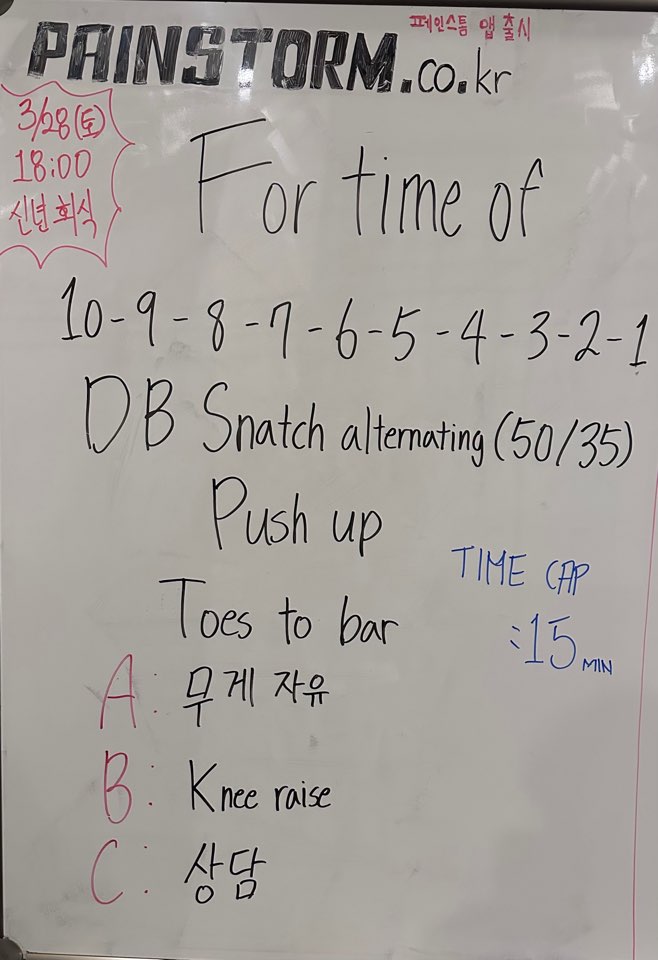 페인스톰 앱 출시
PAINSTORM.co.kr
3/28(토)
18:00
신년회식
For time of
10-9-8-7-6-5-4-3-2-1
DB Snatch alternating (50/35)
Push up
Toes to bar
TIME CAP
:15 MIN
A: 무게 자유
B: Knee raise
C: 상담